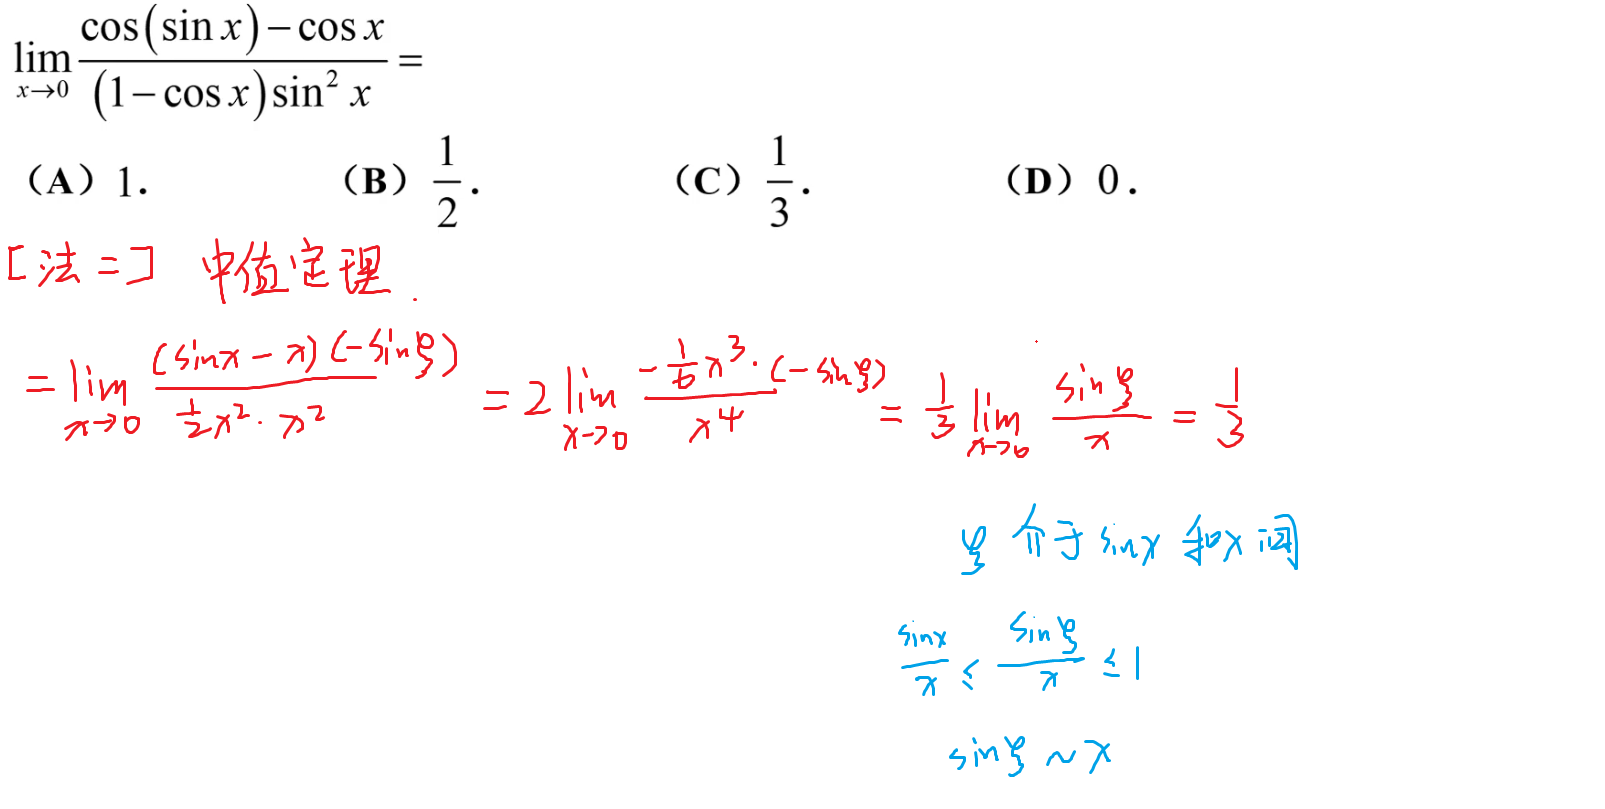 lim_{x→0} (cos(sin x) − cos x) / ((1 − cos x) sin² x) =
（A）1.　（B）1/2.　（C）1/3.　（D）0.
[法二] 中值定理.
= lim_{x→0} (sinx − x)(−sinξ) / (1/2 x² · x²) = 2 lim_{x→0} (−1/6 x³ · (−sinξ)) / x⁴ = 1/3 lim_{x→0} sinξ / x = 1/3
ξ 介于 sinx 和x 间
sinx / x ≤ sinξ / x ≤ 1
sinξ ~ x